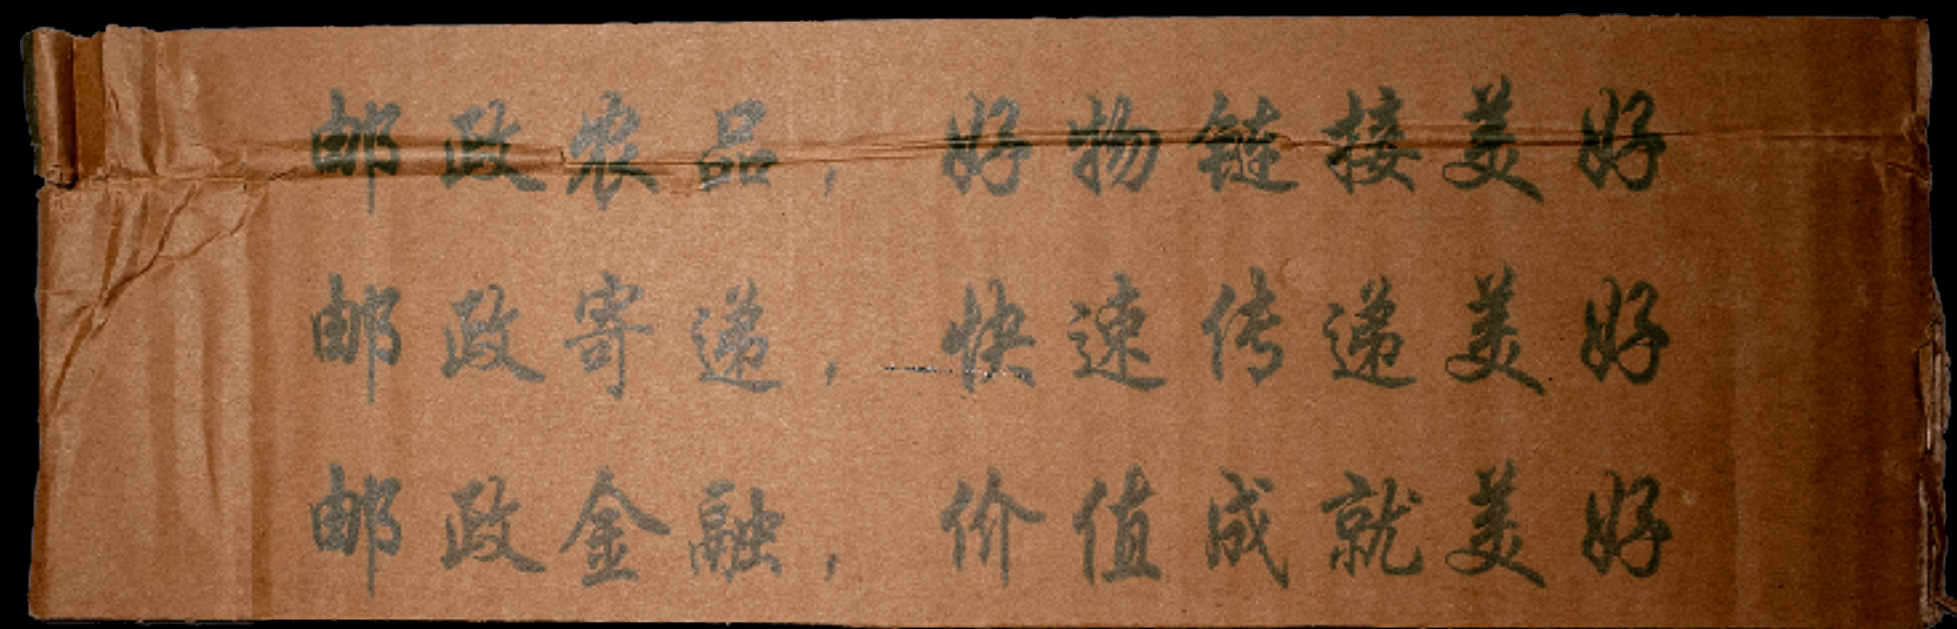 邮政农品，好物链接美好
邮政寄递，快速传递美好
邮政金融，价值成就美好